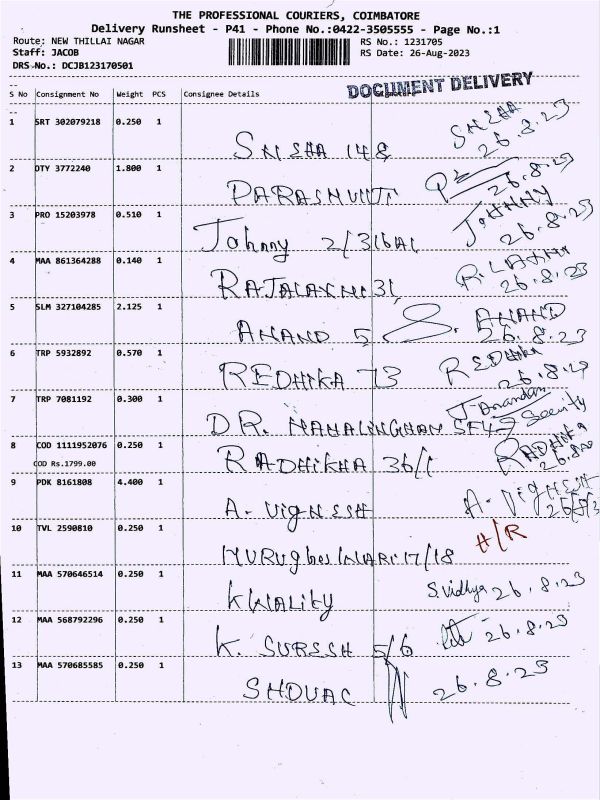 THE PROFESSIONAL COURIERS, COIMBATORE
Delivery Runsheet - P41 - Phone No.:0422-3505555 - Page No.:1
Route: NEW THILLAI NAGAR RS No.: 1231705
Staff: JACOB RS Date: 26-Aug-2023
DRS No.: DCJB123170501
DOCUMENT DELIVERY
S No Consignment No Weight PCS Consignee Details
1 SRT 302079218 0.250 1 SNEHA 148 SNEHA 26.8.23
2 OTY 3772240 1.800 1 26.8.23
3 PRO 15203978 0.510 1 Johnny JOHNNY 26.8.23
4 MAA 861364288 0.140 1 RAJALAXMI 31 26.8.23
5 SLM 327104285 2.125 1 ANAND 5 S. ANAND 26.8.23
6 TRP 5932892 0.570 1 REDHIKA 73 REDHIKA 26.8.23
7 TRP 7081192 0.300 1 DR. Security
8 COD 1111952076 0.250 1 RADHIKHA 36/1 RADHIKA
COD Rs.1799.00
9 PDK 8161808 4.400 1 A. VIGNESH A. VIGNESH
10 TVL 2590810 0.250 1 17/18 H/R
11 MAA 570646514 0.250 1 KWALITY S.Vidhya 26.8.23
12 MAA 568792296 0.250 1 K. SURESH 5/6 26.8.23
13 MAA 570685585 0.250 1 26.8.23